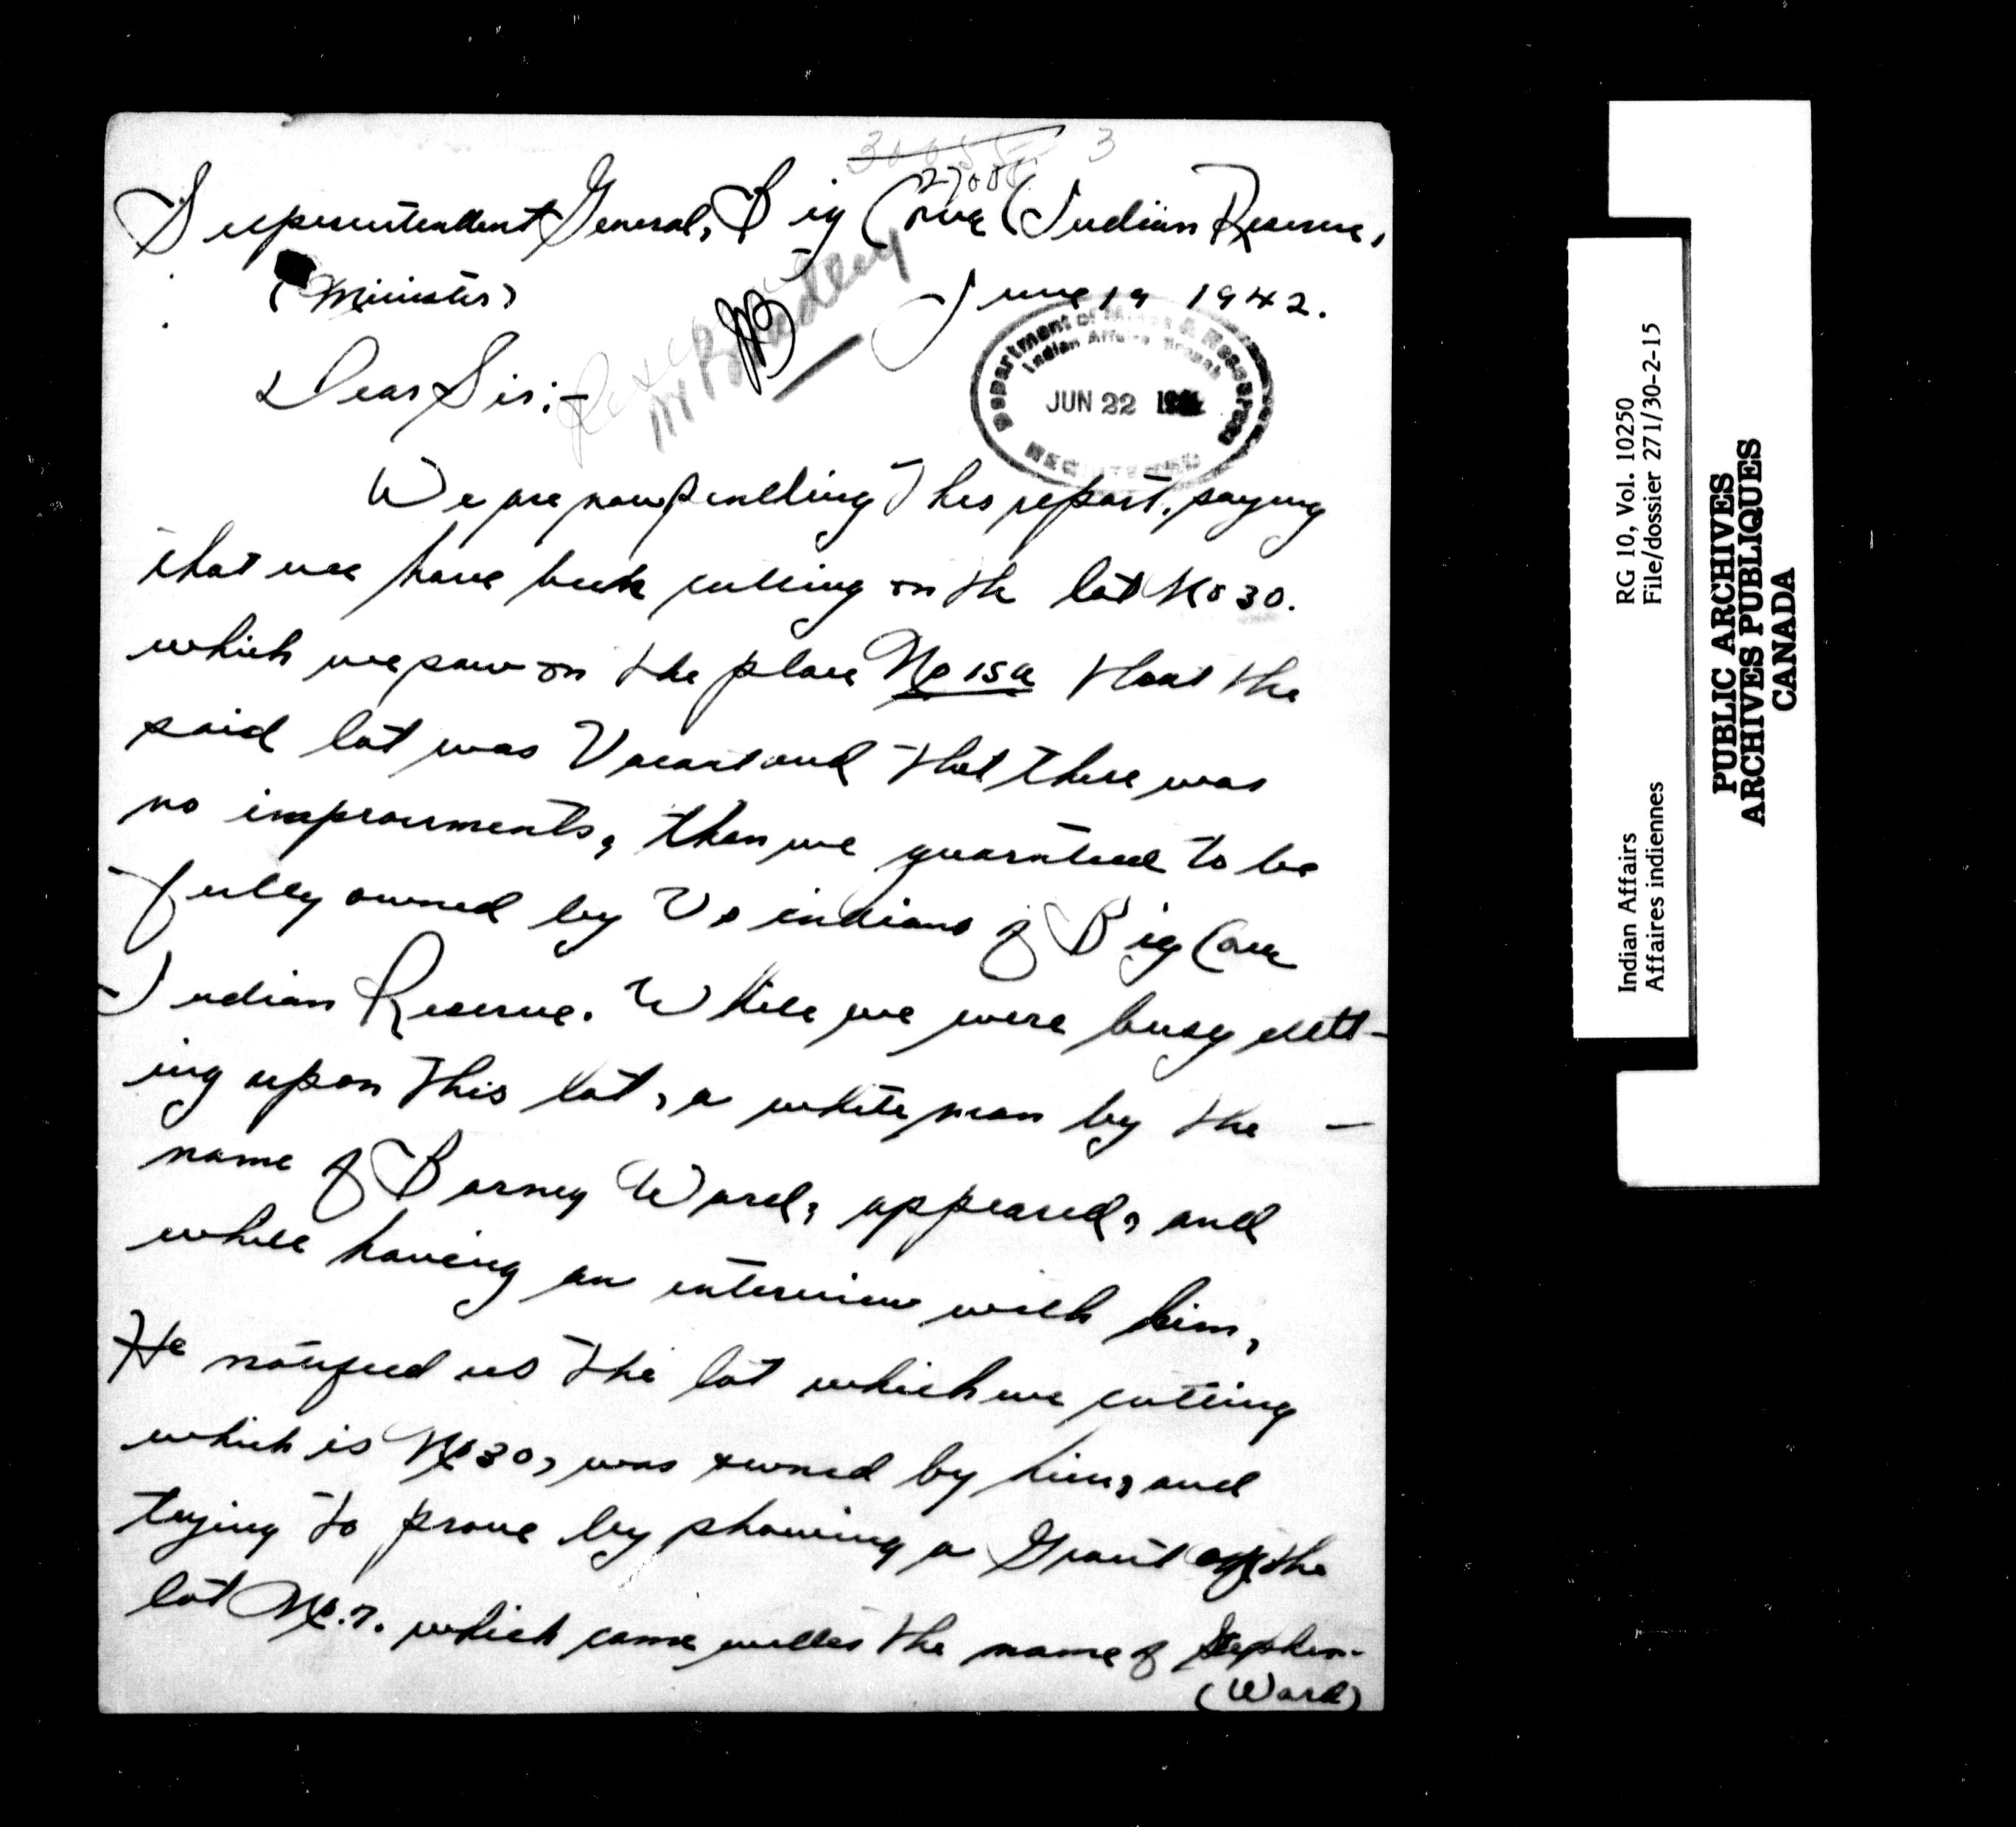 3
27005
Superentendent General, Big Cove Indian Reserve,
(Minister)
June 19 1942.
Mr Bradley
Dear Sir:-
Department of Mines & Resources
Indian Affairs Branch
JUN 22
REGISTERED
We are now penciling this report, saying
that we have been cutting on the lot No 30.
which we saw on the place No 15a that the
said lot was Vacant and that there was
no improvments, then we guaranteed to be
fully owned by Us indians of Big Cove
Indian Reserve. While we were busy cutt-
ing upon this lot, a white man by the -
name of Barney Ward, appeared, and
while having an interview with him,
He notified us the lot which we cutting
which is No 30, was owned by him, and
trying to prove by showing a Grant of the
lot No. 7. which came under the name of Stephen-
(Ward)
Indian Affairs RG 10, Vol. 10250
Affaires indiennes File/dossier 271/30-2-15
PUBLIC ARCHIVES
ARCHIVES PUBLIQUES
CANADA